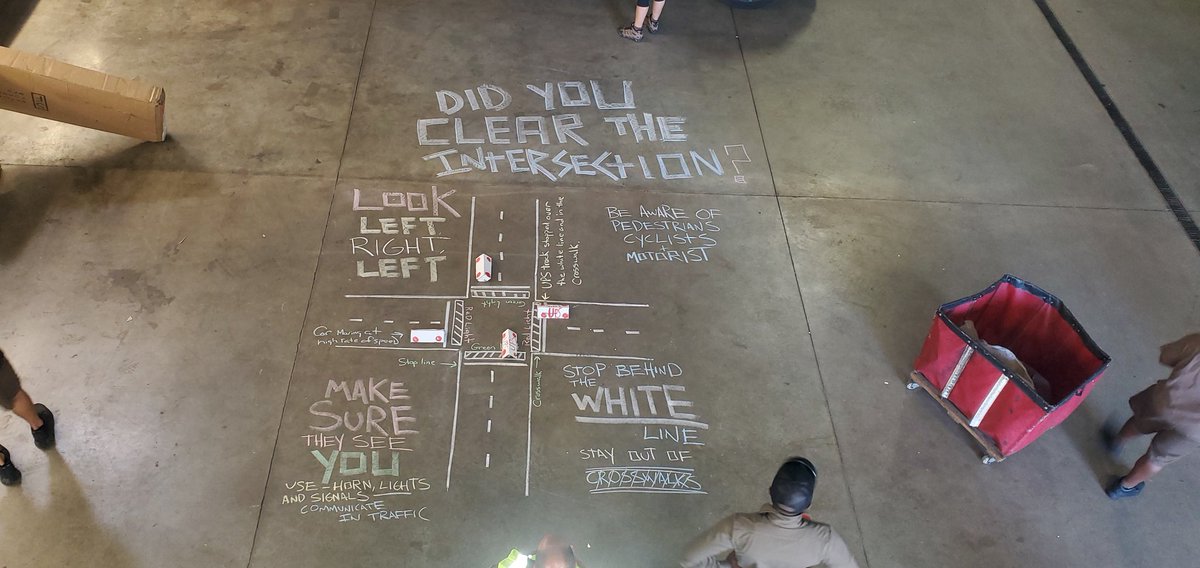 DID YOU
CLEAR THE
INTERSECTION?
LOOK
LEFT
RIGHT
LEFT
BE AWARE OF
PEDESTRIANS
CYCLISTS
+
MOTORIST
← UPS truck stopped over
the white line and in the
crosswalk.
Green light
Red Light
Red Light
Green
UPS
Car Moving at
high rate of speed
Stop line →
Crosswalk →
MAKE
SURE
THEY SEE
YOU
USE - HORN, LIGHTS
AND SIGNALS
COMMUNICATE
IN TRAFFIC
STOP BEHIND
THE
WHITE
LINE
STAY OUT OF
CROSSWALKS